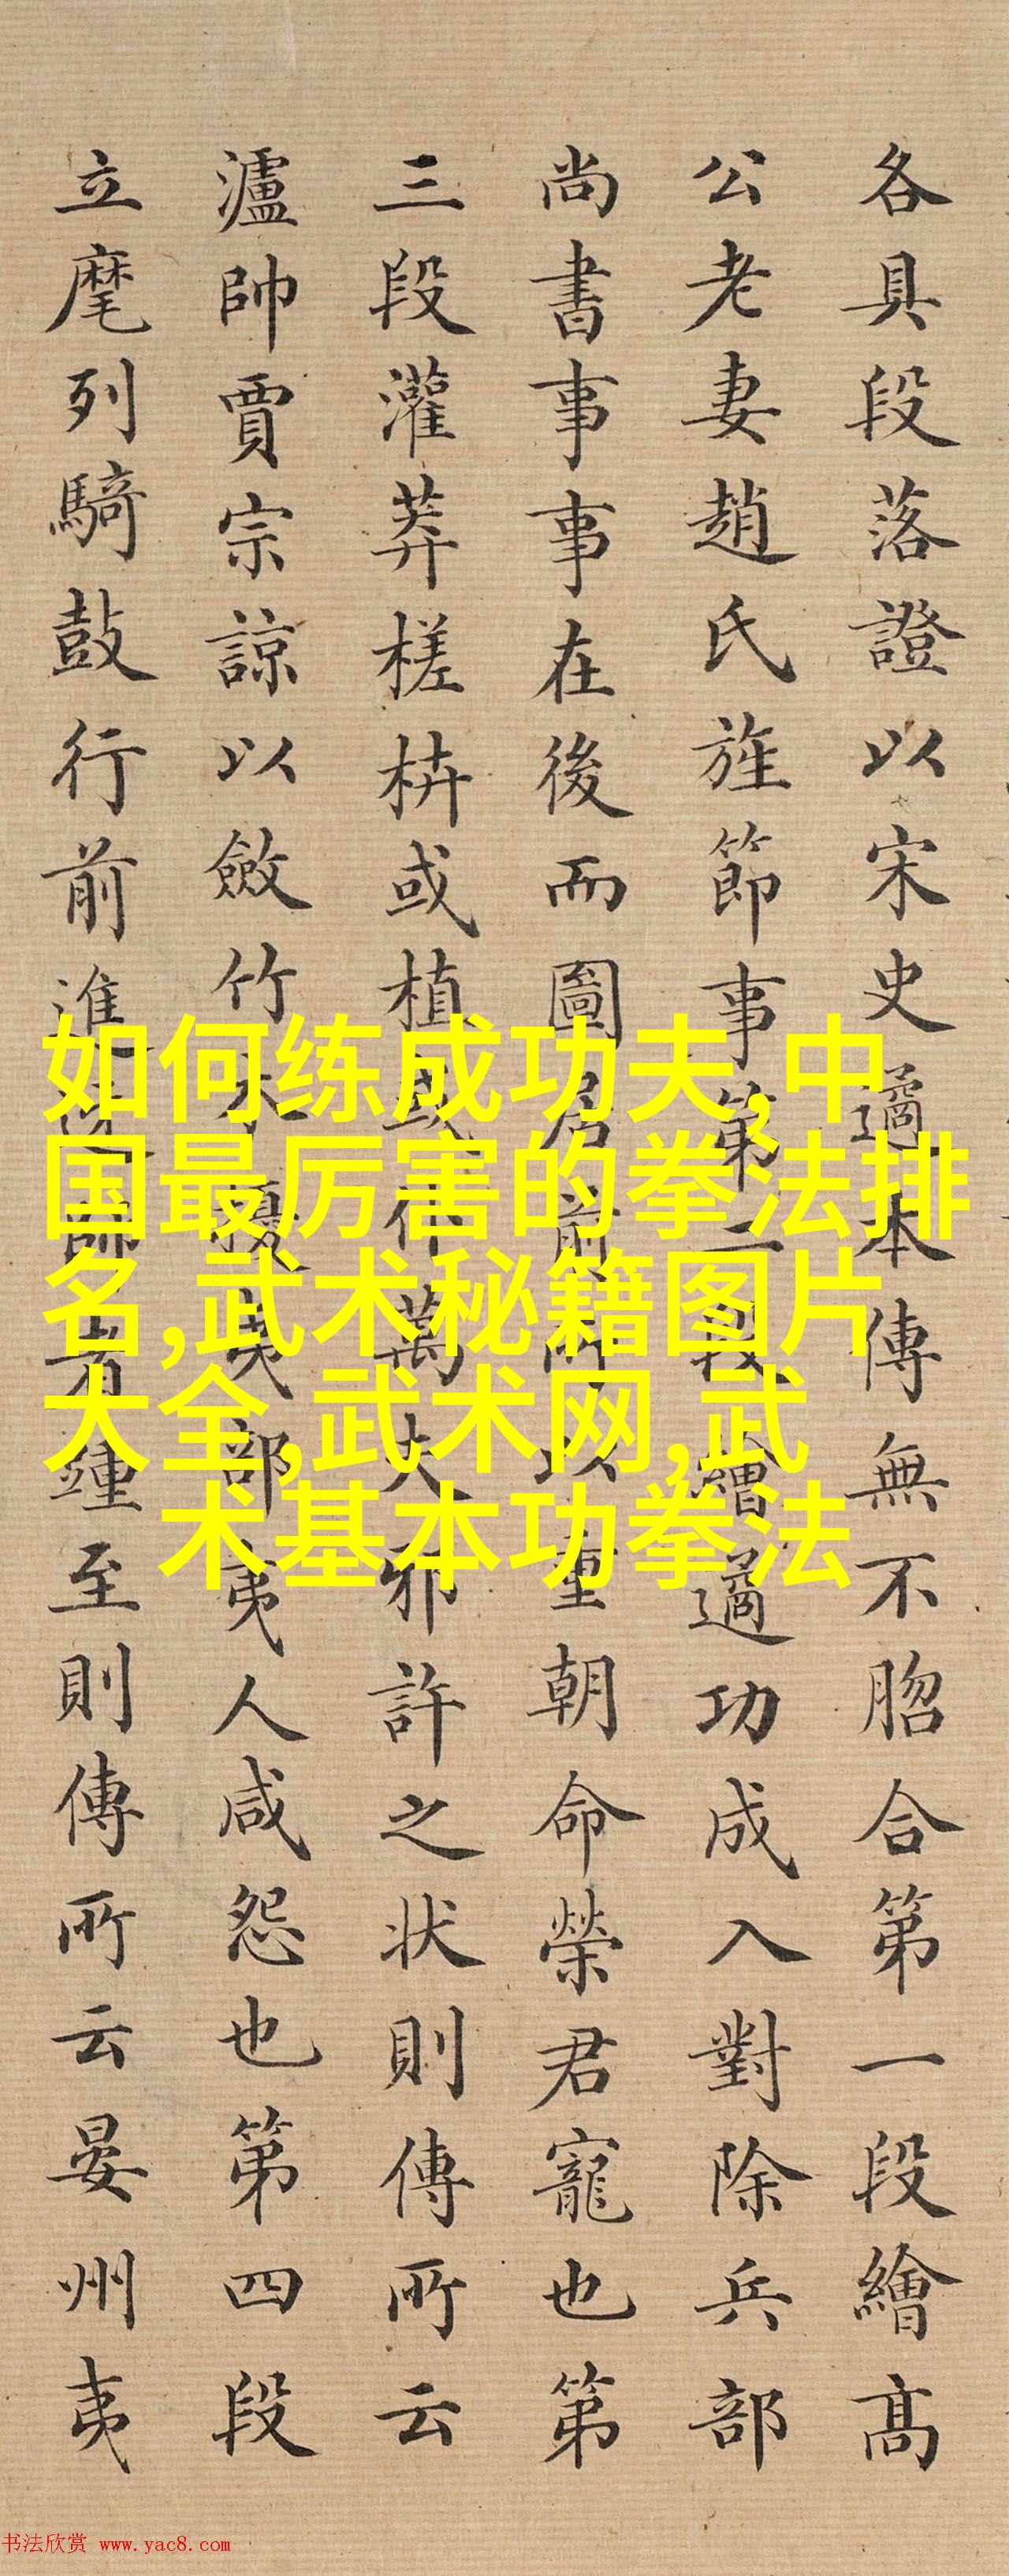 各具段落證以宋史遹本傳無不脗合第一段繪高
公老妻趙氏旌節事第二段繪遹功成入對除兵部
尚書事事在後而圖居前所以重朝命榮君寵也第
三段灌莽槎枿或植或仆萬夫邪許之狀則傳所云
瀘帥賈宗諒以斂竹木擾夷部夷人咸怨也第四段
立麾列騎鼓行前進至則傳所云晏州夷
如何练成功夫,中
国最厉害的拳法排
名,武术秘籍图片
大全,武术网,武
术基本功拳法
书法欣赏 www.yac8.com